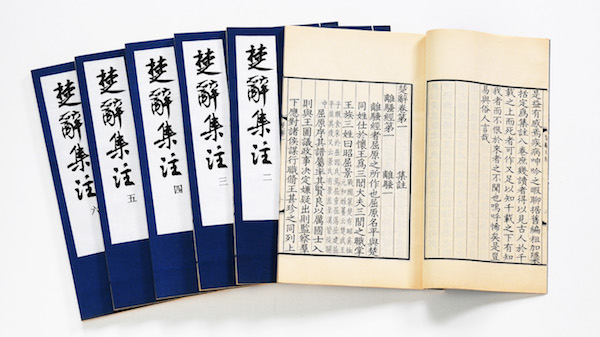 是益有感焉疾病呻吟之暇聊据舊編粗加櫽
括定爲集註八卷庶幾讀者得以見古人於千
載之上而死者可作又足以知千載之下有知
我者而不恨於來者之不聞也嗚呼悕矣是豈
易與俗人言哉
楚辭卷第一 集註
離騷經第 離騷一
離騷經者屈原之所作也屈原名平與楚
同姓仕於懷王爲三閭大夫三閭之職掌
王族三姓曰昭屈景
屈原序其譜屬率其賢良以厲國士入
則與王圖議政事決定嫌疑出則監察羣
下應對諸侯謀行職脩王甚珍之同列上
楚辭集注 二
楚辭集注 三
楚辭集注 四
楚辭集注 五
楚辭集注 六